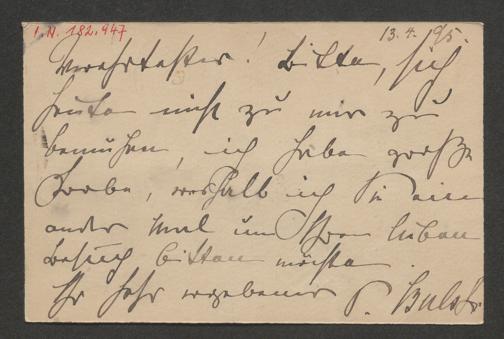 I.N. 182.947
13.4.95.
Verehrtester! Bitte, sich
heute nicht zu mir zu
bemühen, ich habe große
Probe, weshalb ich Sie ein
ander Mal um Ihren lieben
Besuch bitten möchte.
Ihr sehr ergebener P.